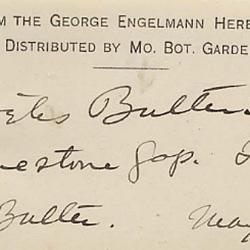 M THE GEORGE ENGELMANN HERB
DISTRIBUTED BY MO. BOT. GARDE
Butler
estone Gap.
Butler. May